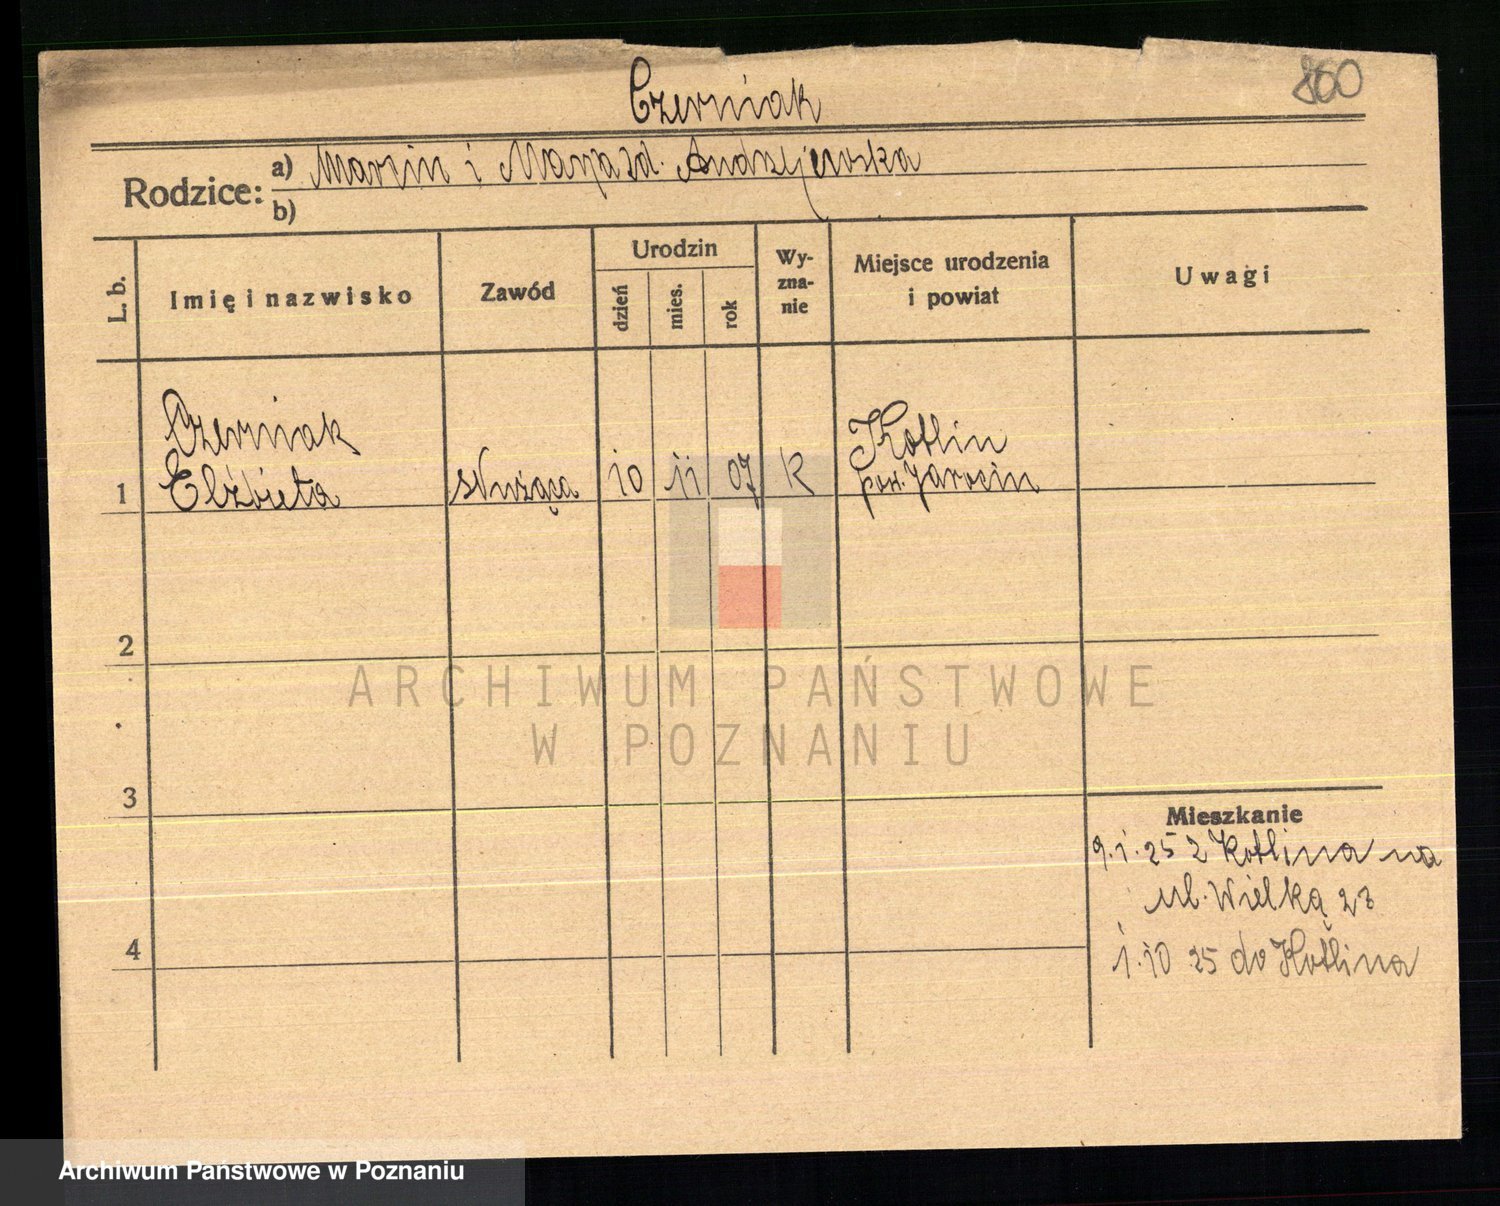 860
Czerniak
Rodzice: a) Marcin i Marja zd. Andrzejewska
b)
L. b.
Imię i nazwisko
Zawód
Urodzin
dzień
mies.
rok
Wy-
zna-
nie
Miejsce urodzenia
i powiat
Uwagi
Czerniak
Elżbieta
1
służąca
10
11
07
K
Kotlin
pow. Jarocin
2
3
4
Mieszkanie
9.1.25 z Kotlina na
ul. Wielką 23
1.10 25 do Kotlina
ARCHIWUM PAŃSTWOWE
W POZNANIU
Archiwum Państwowe w Poznaniu